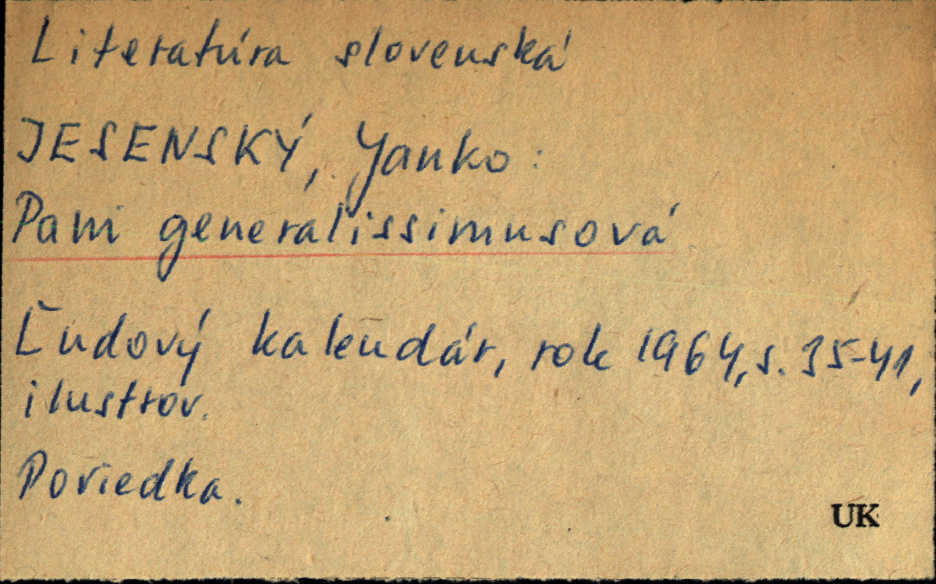 Literatúra slovenská
JESENSKÝ, Janko:
Pani generalissimusová
Ľudový kalendár, rok 1964, s. 35-41,
ilustrov.
Poviedka.
UK